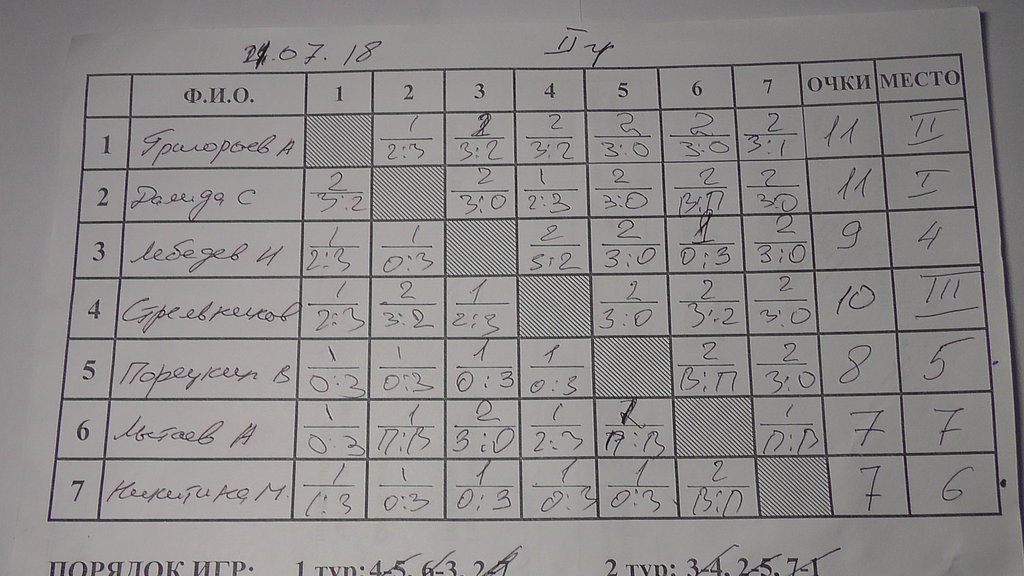 21.07.18 II гр
Ф.И.О. 1 2 3 4 5 6 7 ОЧКИ МЕСТО
1 Григорьев А 1 2:3 2 3:2 2 3:2 2 3:0 2 3:0 2 3:1 11 II
2 Далида С 2 3:2 2 3:0 1 2:3 2 3:0 2 В:П 2 3:0 11 I
3 Лебедев И 1 2:3 1 0:3 2 3:2 2 3:0 1 0:3 2 3:0 9 4
4 1 2:3 2 3:2 1 2:3 2 3:0 2 3:2 2 3:0 10 III
5 Порецкий В 1 0:3 1 0:3 1 0:3 1 0:3 2 В:П 2 3:0 8 5
6 Мытаев А 1 0:3 1 П:В 2 3:0 1 2:3 1 П:В 1 П:В 7 7
7 Никитина М. 1 1:3 1 0:3 1 0:3 1 0:3 1 0:3 2 В:П 7 6
ПОРЯДОК ИГР: 1 тур: 4-5, 6-3, 2-1 2 тур: 3-4, 2-5, 7-1